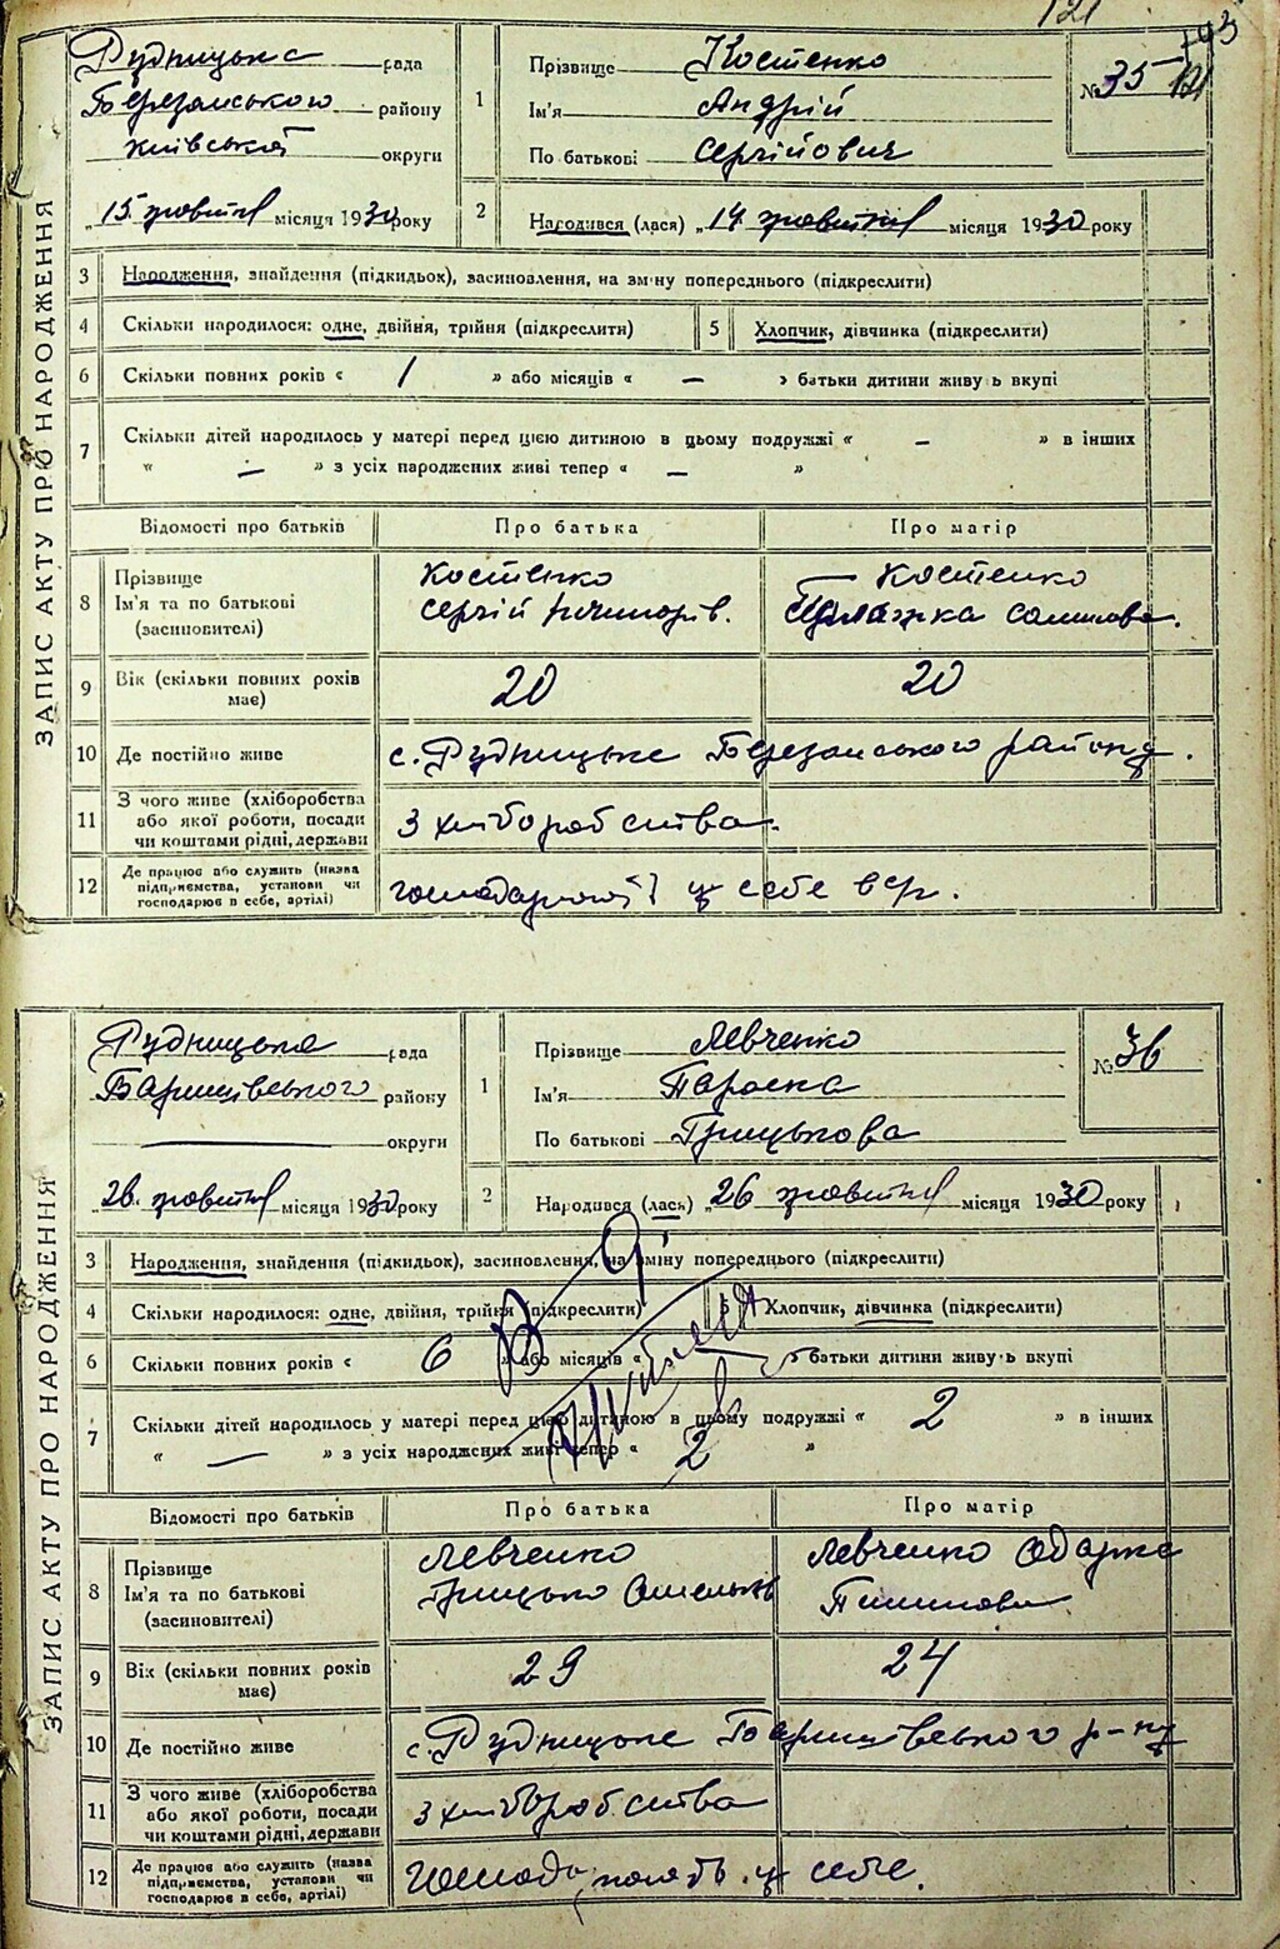 121
193
ЗАПИС АКТУ ПРО НАРОДЖЕННЯ
Рудницька рада
Березанського району
київської округи
„15. жовтня місяця 1930 року
1
Прізвище Костенко
Ім'я Андрій
По батькові Сергійович
№ 35 121
2
Народився (лася) „14. жовтня місяця 1930 року
3 Народження, знайдення (підкидьок), засиновлення, на зміну попереднього (підкреслити)
4 Скільки народилося: одне, двійня, трійня (підкреслити) 5 Хлопчик, дівчинка (підкреслити)
6 Скільки повних років « 1 » або місяців « – » батьки дитини живуть вкупі
7 Скільки дітей народилось у матері перед цією дитиною в цьому подружжі « – » в інших
« – » з усіх народжених живі тепер « – »
Відомості про батьків Про батька Про матір
8 Прізвище Ім'я та по батькові (засиновителі)
Костенко
Сергій
Костенко
9 Вік (скільки повних років має) 20 20
10 Де постійно живе с. Рудницьке Березанського району.
11 З чого живе (хліборобства або якої роботи, посади чи коштами рідні, держави З хліборобства.
12 Де працює або служить (назва підприємства, установи чи господарює в себе, артілі) у себе
ЗАПИС АКТУ ПРО НАРОДЖЕННЯ
Рудницька рада
Баришівського району
— округи
„26. жовтня місяця 1930 року
1
Прізвище Левченко
Ім'я Параска
По батькові Грицькова
№ 36
2
Народився (лась) „26 жовтня місяця 1930 року
3 Народження, знайдення (підкидьок), засиновлення, на зміну попереднього (підкреслити)
4 Скільки народилося: одне, двійня, трійня (підкреслити) 5 Хлопчик, дівчинка (підкреслити)
6 Скільки повних років « 6 » або місяців « » батьки дитини живуть вкупі
7 Скільки дітей народилось у матері перед цією дитиною в цьому подружжі « 2 » в інших
« — » з усіх народжених живі тепер « 2 »
Відомості про батьків Про батька Про матір
8 Прізвище Ім'я та по батькові (засиновителі)
Левченко
Грицько Омельків
Левченко Одарка
9 Вік (скільки повних років має) 29 24
10 Де постійно живе с. Рудницьке Баришівського р-ну
11 З чого живе (хліборобства або якої роботи, посади чи коштами рідні, держави З хліборобства
12 Де працює або служить (назва підприємства, установи чи господарює в себе, артілі) у себе.